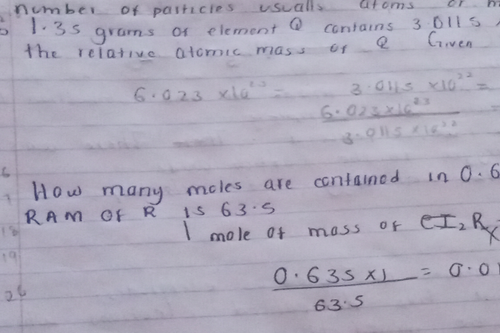 number of particles usually atoms or
1.35 grams of element Q contains 3.0115
the relative atomic mass of Q Given
6.023 ×10 = 3.0115 ×10²² =
6.023×10²³
3.0115×10²²
How many moles are contained in 0.6
RAM OF R is 63.5
1 mole of mass of
0.635 × 1 = 0.01
63.5